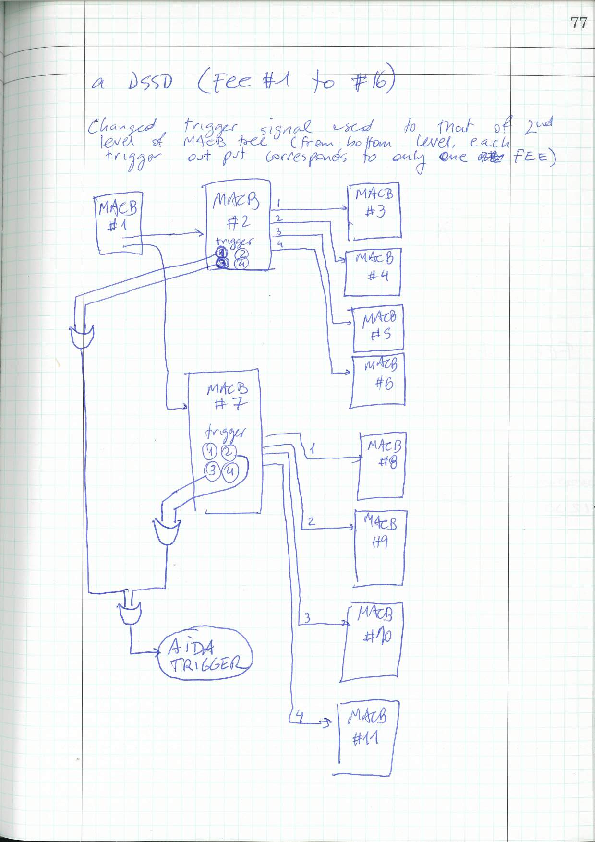 77
a DSSD (FEE #1 to #16)
Changed trigger signal used to that of 2nd
level of MACB tree (from bottom level, each
trigger out put corresponds to only one FEE)
MACB
#1
MACB
#2
trigger
1 2
3 4
1
2
3
4
MACB
#3
MACB
#4
MACB
#5
MACB
#6
MACB
#7
trigger
1 2
3 4
1
MACB
#8
2
MACB
#9
3
MACB
#10
4
MACB
#11
AIDA
TRIGGER